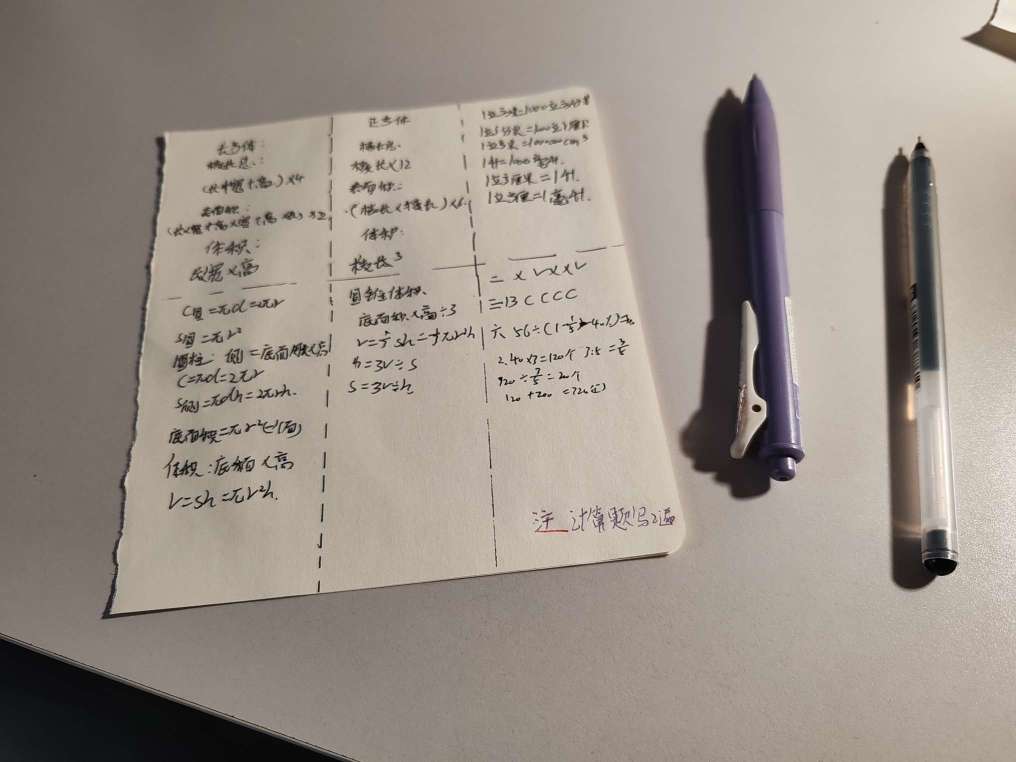 长方体:
棱长总:
(长+宽+高)×4
表面积:
体积:
长宽×高
正方体
棱长总:
棱长×12
表面积:
(棱长×棱长)×6
体积:
棱长³
1立方米=1000立方分米
1立方米=1000000cm³
1升=1000毫升.
1立方厘米=1升.
1立方厘=1毫升.
C圆=πd=2πr
S圆=πr²
圆柱: 侧=底面周长×高
C=πd=2πr
S侧=πdh=2πrh.
底面积=πr²
体积:底面积×高
V=Sh=πr²h.
圆锥体积.
底面积×高÷3
V=⅓Sh=⅓πr²h
h=3V÷S
S=3V÷h
二 × √ × × √
三 13 C C C C
六 56÷(1-⅕-40%)=
2. 40×3=120个 3:5=3/5
120÷3/5=200个
120+200=320(个)
注 计算题写2遍